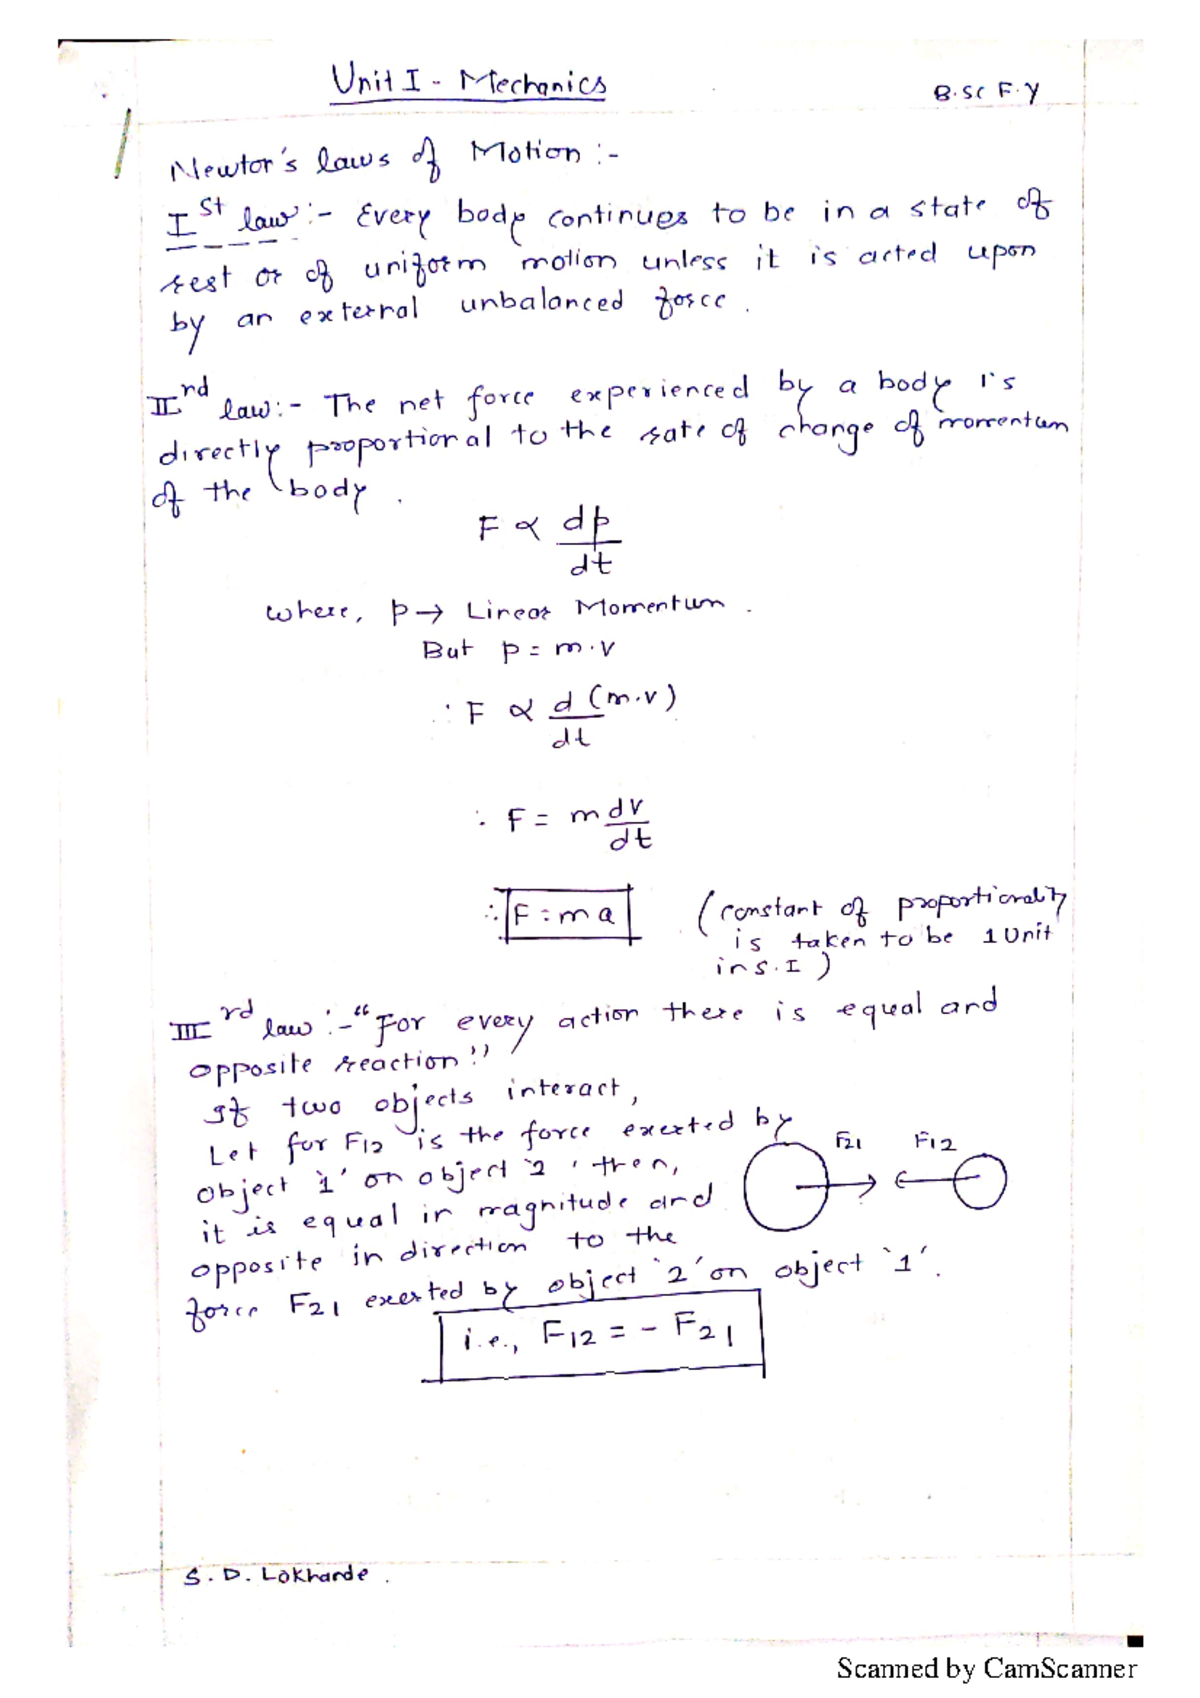 Unit I - Mechanics
B.Sc F.Y
Newton's laws of Motion :-
Ist law :- Every body continues to be in a state of
rest or of uniform motion unless it is acted upon
by an external unbalanced force .
IIrd law :- The net force experienced by a body is
directly proportional to the rate of change of momentum
of the body .
F ∝ dp/dt
where, p → Linear Momentum .
But p = m.v
∴ F ∝ d (m.v)/dt
∴ F = m dv/dt
∴ F = ma
(constant of proportionality
is taken to be 1 Unit
in S.I )
IIIrd law :- "For every action there is equal and
opposite reaction"
If two objects interact,
Let for F12 is the force exerted by
object '1' on object '2' then,
it is equal in magnitude and
opposite in direction to the
force F21 exerted by object '2' on object '1'.
F21 F12
i.e., F12 = - F21
S. D. Lokharde .
Scanned by CamScanner